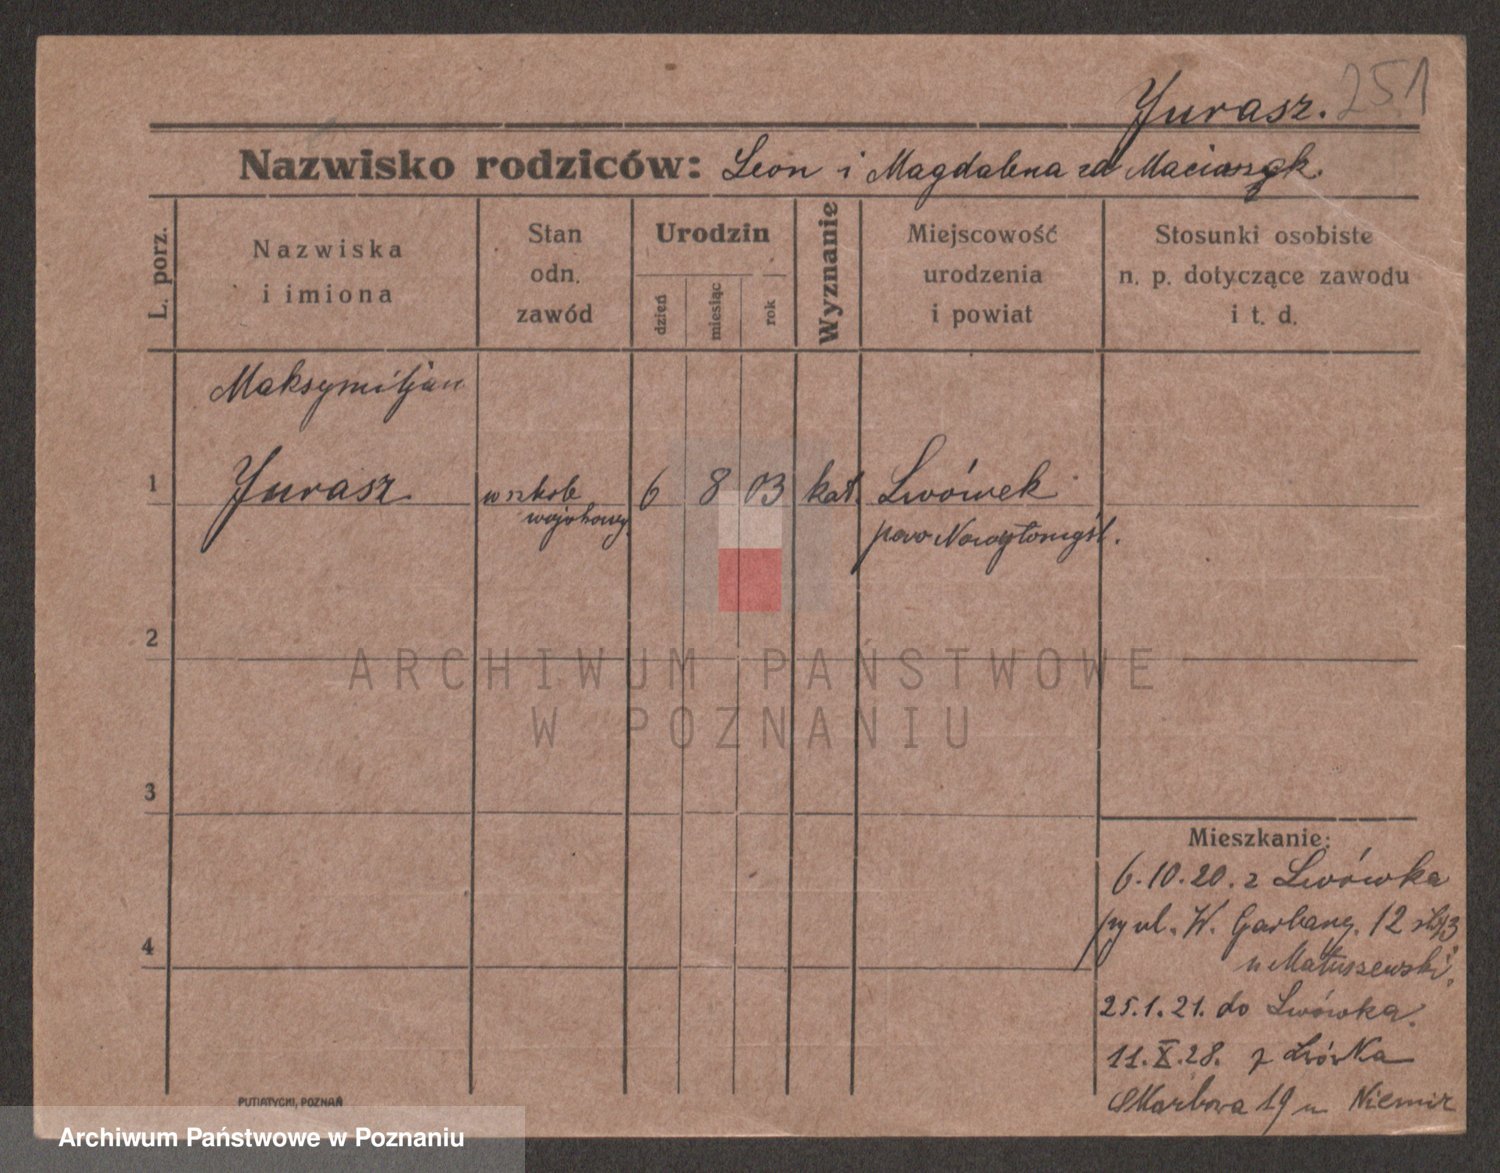 251
Jurasz.
Nazwisko rodziców: Leon i Magdalena zd Maciaszyk.
L. porz.
Nazwiska
i imiona
Stan
odn.
zawód
Urodzin
dzień
miesiąc
rok
Wyznanie
Miejscowość
urodzenia
i powiat
Stosunki osobiste
n. p. dotyczące zawodu
i t. d.
Maksymiljan
1 Jurasz w szkole 6 8 03 kat. Lwówek
pow Nowytomyśl.
2
ARCHIWUM PAŃSTWOWE
W POZNANIU
3
Mieszkanie:
6.10.20. z Lwówka
ul. W. Garbary. 12
u Matuszewski.
4
25.1.21. do Lwówka.
11.X.28. z Lwówka
Skarbowa 19 u Niemir
PUTIATYCKI, POZNAŃ
Archiwum Państwowe w Poznaniu